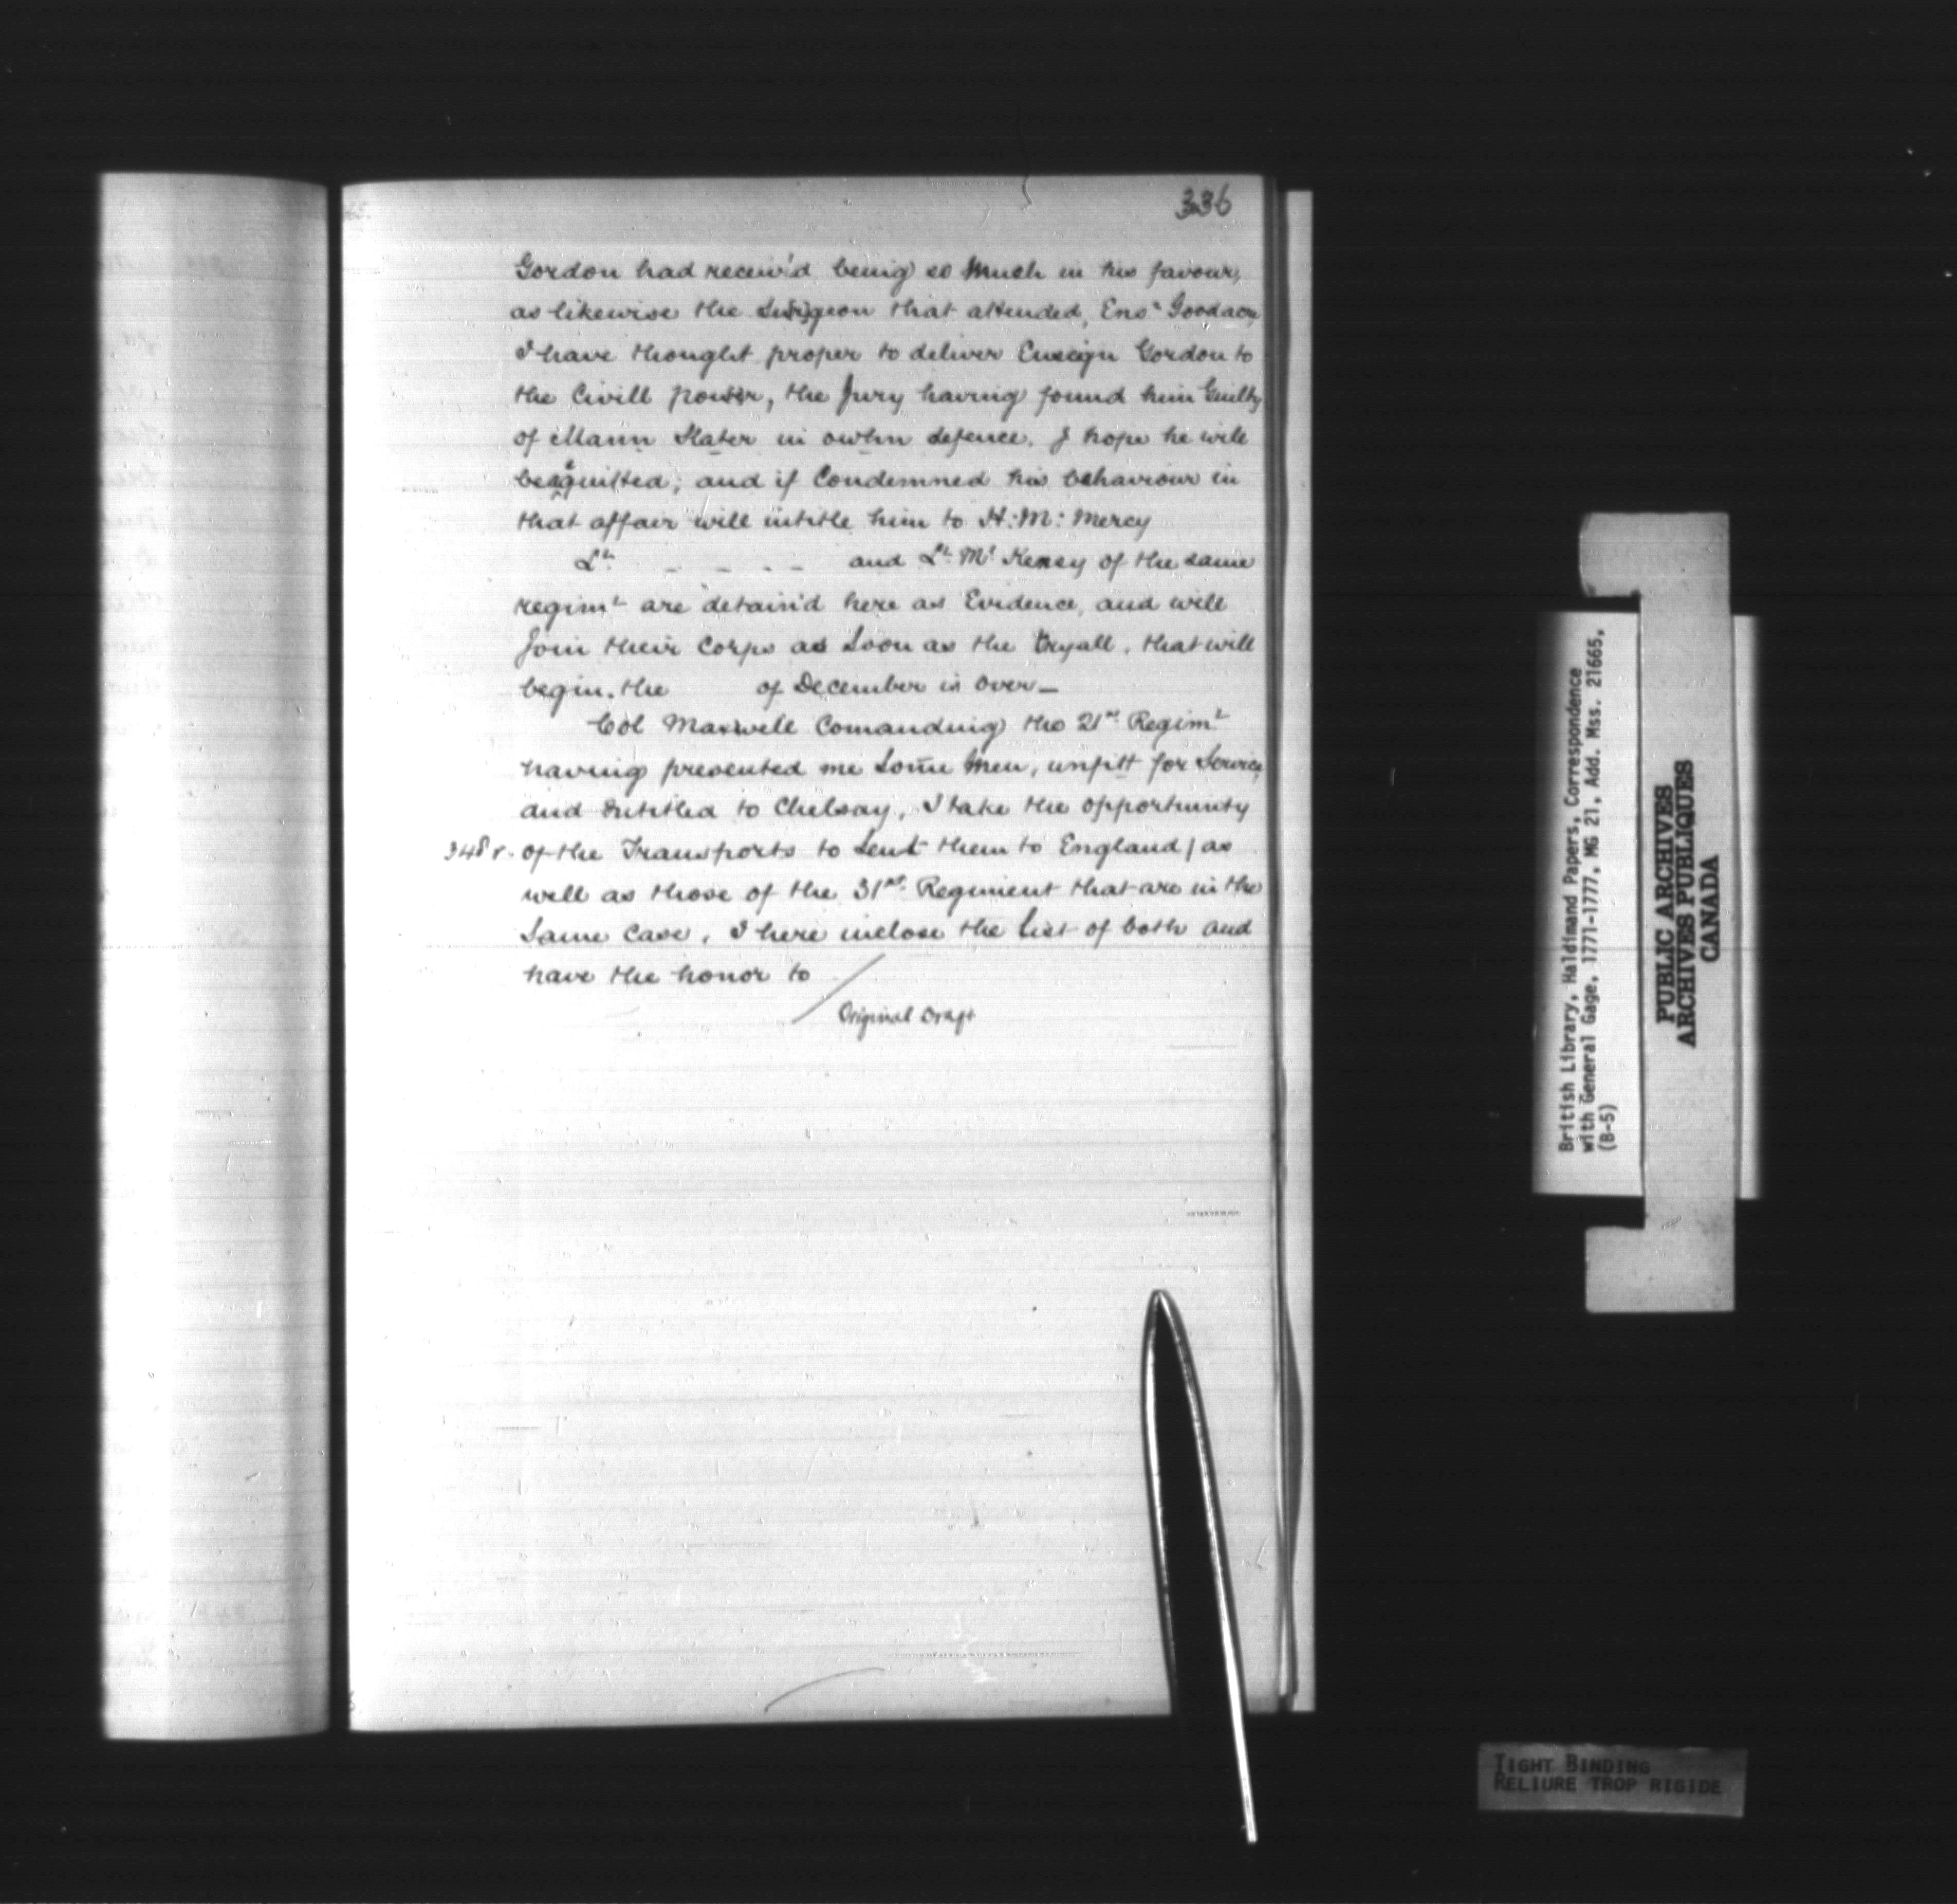 336
Gordon had receiv'd being so Much in his favour,
as likewise the Surgeon that attended, Ens.n Goodacre,
I have thought proper to deliver Ensign Gordon to
the Civill power, the Jury having found him Guilty
of Mann Slater in owhn defence. I hope he will
be aquitted; and if Condemned his behaviour in
that affair will intitle him to H: M: Mercy
Lt. - - - - - and Lt. Mc Kensy of the same
regimt are detain'd here as Evidence, and will
Join their Corps as Soon as the tryall, that will
begin, the of December is Over—
Col Maxwell Comanding the 21st Regimt
having presented me Some Men, unfitt for Service
and Intitled to Chelsay, I take the Opportunity
348 r. of the Transports to Sent them to England / as
well as those of the 31st Regiment that are in the
Same Case, I here inclose the List of both and
have the honor to
Original Draft
British Library, Haldimand Papers, Correspondence
with General Gage, 1771-1777, MG 21, Add. Mss. 21665,
(B-5)
PUBLIC ARCHIVES
ARCHIVES PUBLIQUES
CANADA
TIGHT BINDING
RELIURE TROP RIGIDE